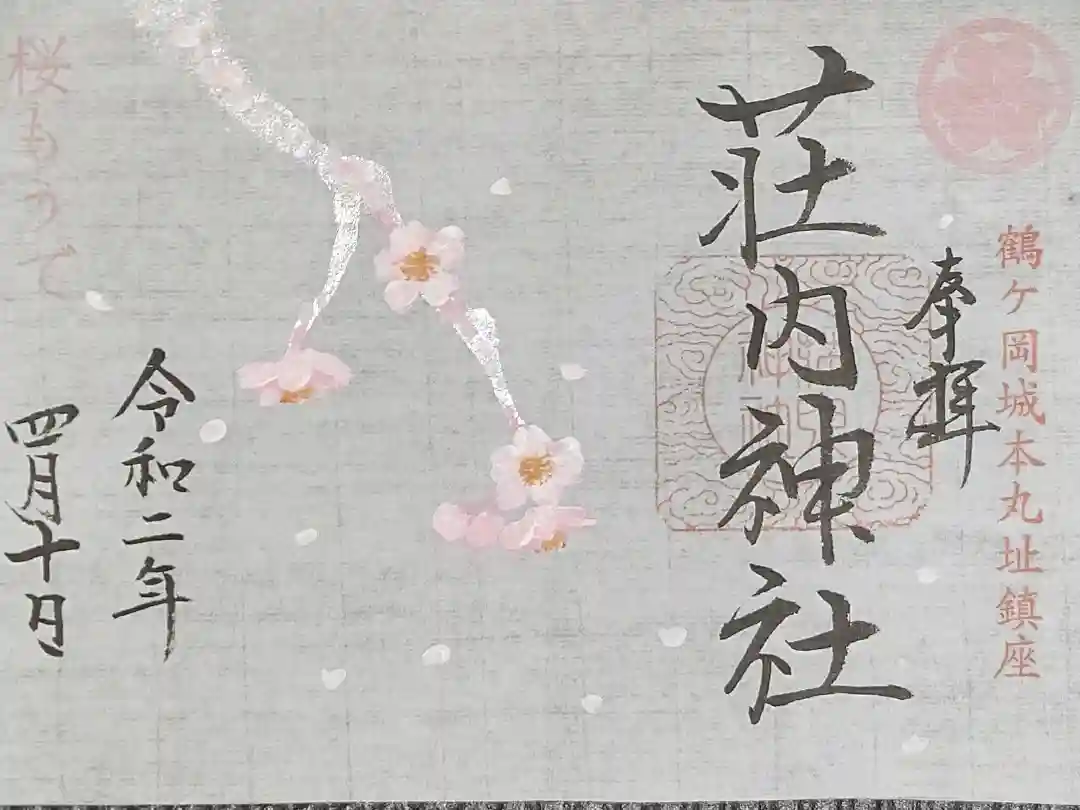 鶴ヶ岡城本丸址鎮座
奉拝
荘内神社
令和二年
四月十日
桜もうで